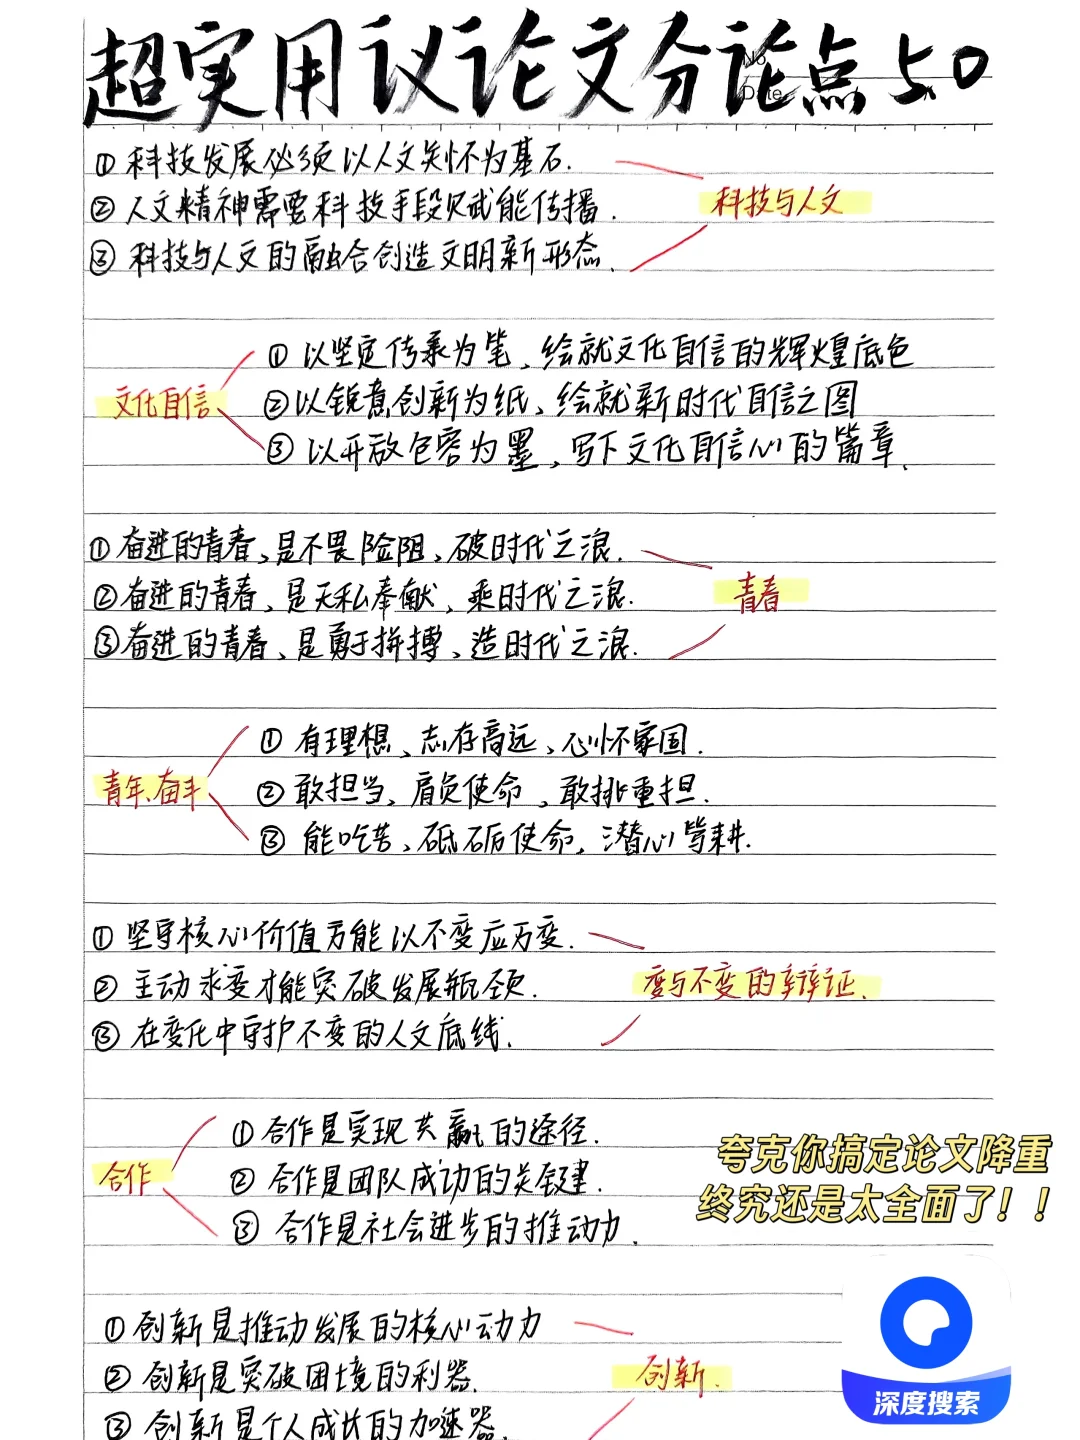 超实用议论文分论点50
No
Date
①科技发展必须以人文关怀为基石.
②人文精神需要科技手段赋能传播.
科技与人文
③科技与人文的融合创造文明新形态.
①以坚定传承为笔、绘就文化自信的辉煌底色
文化自信
②以锐意创新为纸、绘就新时代自信之图
③以开放包容为墨,写下文化自信心的篇章.
①奋进的青春、是不畏险阻,破时代之浪.
②奋进的青春、是无私奉献,乘时代之浪.
青春
③奋进的青春、是勇于拼搏、造时代之浪.
①有理想、志存高远、心怀家国.
青年、奋斗
②敢担当、肩负使命,敢挑重担.
③能吃苦、砥砺使命,潜心笃耕.
①坚守核心价值方能以不变应万变.
②主动求变才能突破发展瓶颈.
变与不变的辩证.
③在变化中守护不变的人文底线.
①合作是实现共赢的途径.
合作
②合作是团队成功的关键.
③合作是社会进步的推动力.
夸克你搞定论文降重
终究还是太全面了!!
①创新是推动发展的核心动力
②创新是突破困境的利器.
创新.
③创新是个人成长的加速器.
深度搜索